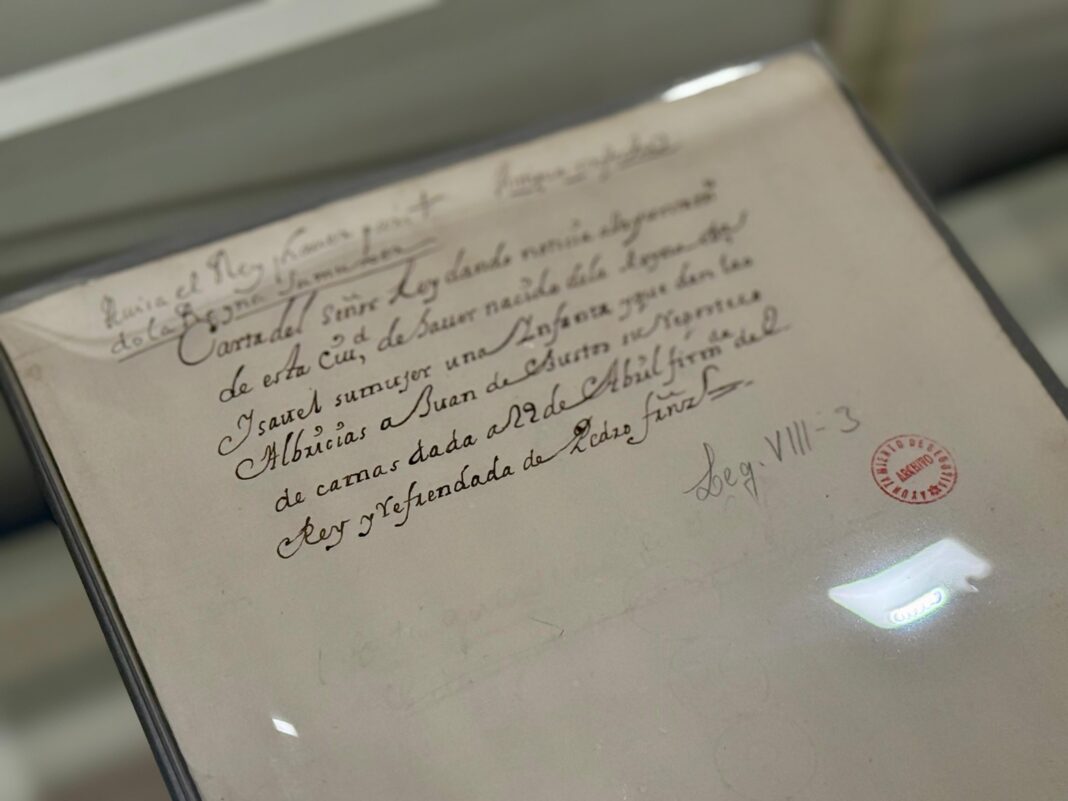 Auisa el Rey hauer parit
do la Reyna su muxer
Carta del Señr Rey dando noticia
de esta Ciud, de hauer nacido dela Reyna
Ysauel sumujer una Infanta yque den las
Albricias a Juan de Bustos su Repostero
de camas dada a 22 de Abril firmda de l
Rey y refrendada de Pedro frñz
Leg. VIII-3
AYUNTAMIENTO DE SEGOVIA
ARCHIVO